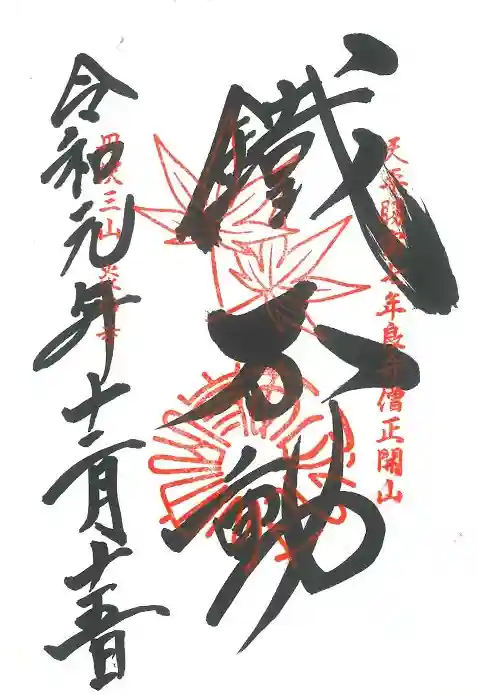 天平勝 七年良弁僧正開山
鐵不動
三山
令和元年十二月十五日